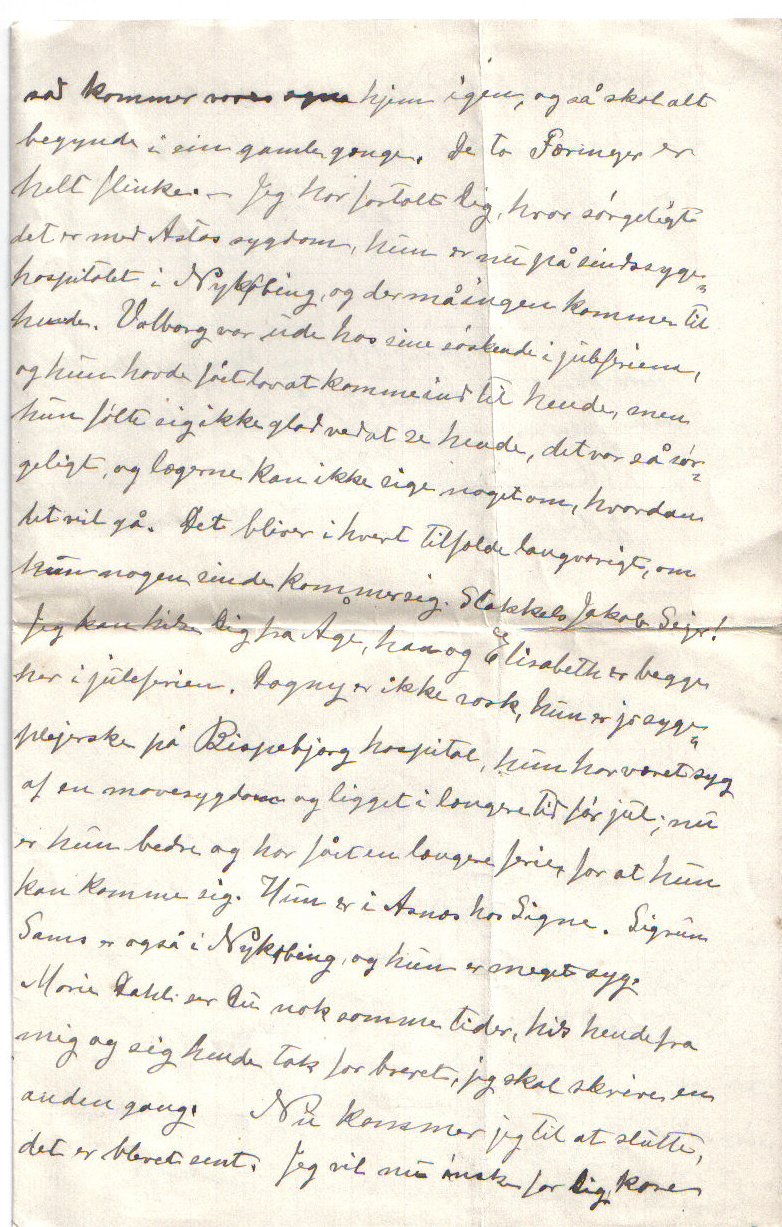 så kommer vores egne hjem igen, og så skal alt
begynde i sin gamle gænge. De to Færinger er
helt flinke. – Jeg har fortalt Dig, hvor sørgeligt
det er med Astas sygdom, hun er nu på sindssyge„
hospitalet i Nykøbing, og der må ingen komme til
hende. Valborg var ude hos sine søskende i juleferien,
og hun havde fået lov at komme ind til hende, men
hun følte sig ikke glad ved at se hende, det var så sør„
geligt, og lægerne kan ikke sige noget om, hvordan
det vil gå. Det bliver i hvert tilfælde langvarigt, om
hun nogen sinde kommer sig. Stakkels Jakob Sejr!
Jeg kan hilse Dig fra Åge, han og Elisabeth er begge
her i juleferien. Dagny er ikke rask, hun er jo syge„
plejerske på Bispebjerg hospital, hun har været syg
af en mavesygdom og ligget i længere tid før jul; nu
er hun bedre og har fået en længere ferie, for at hun
kan komme sig. Hun er i Asnæs hos Signe. Sigrun
Sams er også i Nykøbing, og hun er meget syg.
Marie Dahl ser Du nok somme tider, hils hende fra
mig og sig hende tak for brevet, jeg skal skrive en
anden gang. Nu kommer jeg til at slutte,
det er blevet sent. Jeg vil nu ønske for Dig, kære